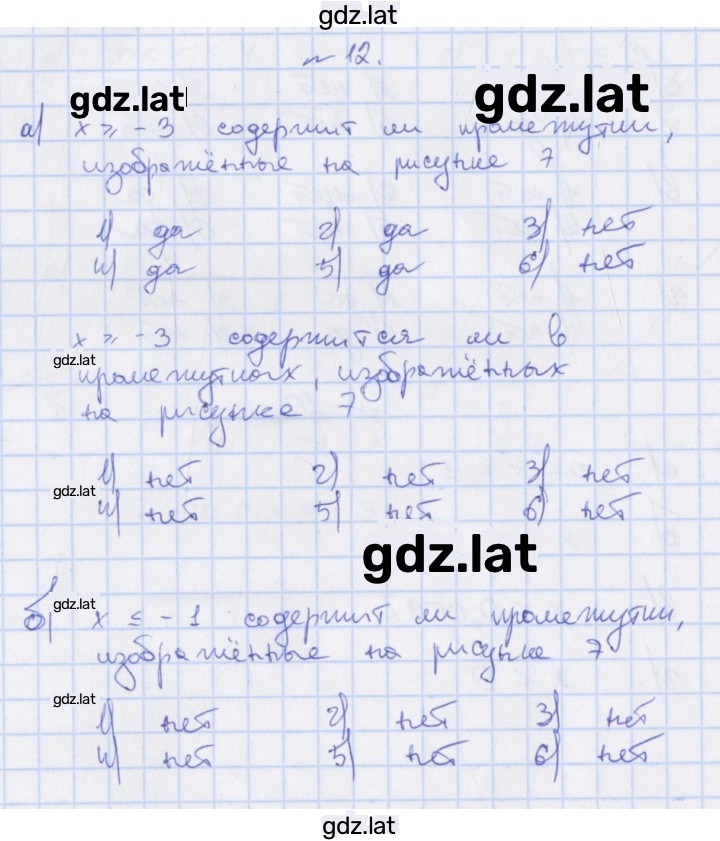 gdz.lat
№ 12.
gdz.lat
gdz.lat
а) x ⩾ -3 содержит ли промежутки,
изображённые на рисунке 7
1) да 2) да 3) нет
4) да 5) да 6) нет
x ⩾ -3 содержится ли в
gdz.lat
промежутках, изображённых
на рисунке 7
1) нет 2) нет 3) нет
gdz.lat
4) нет 5) нет 6) нет
gdz.lat
gdz.lat
б) x ≤ -1 содержит ли промежутки,
изображённые на рисунке 7
gdz.lat
1) нет 2) нет 3) нет
4) нет 5) нет 6) нет
gdz.lat